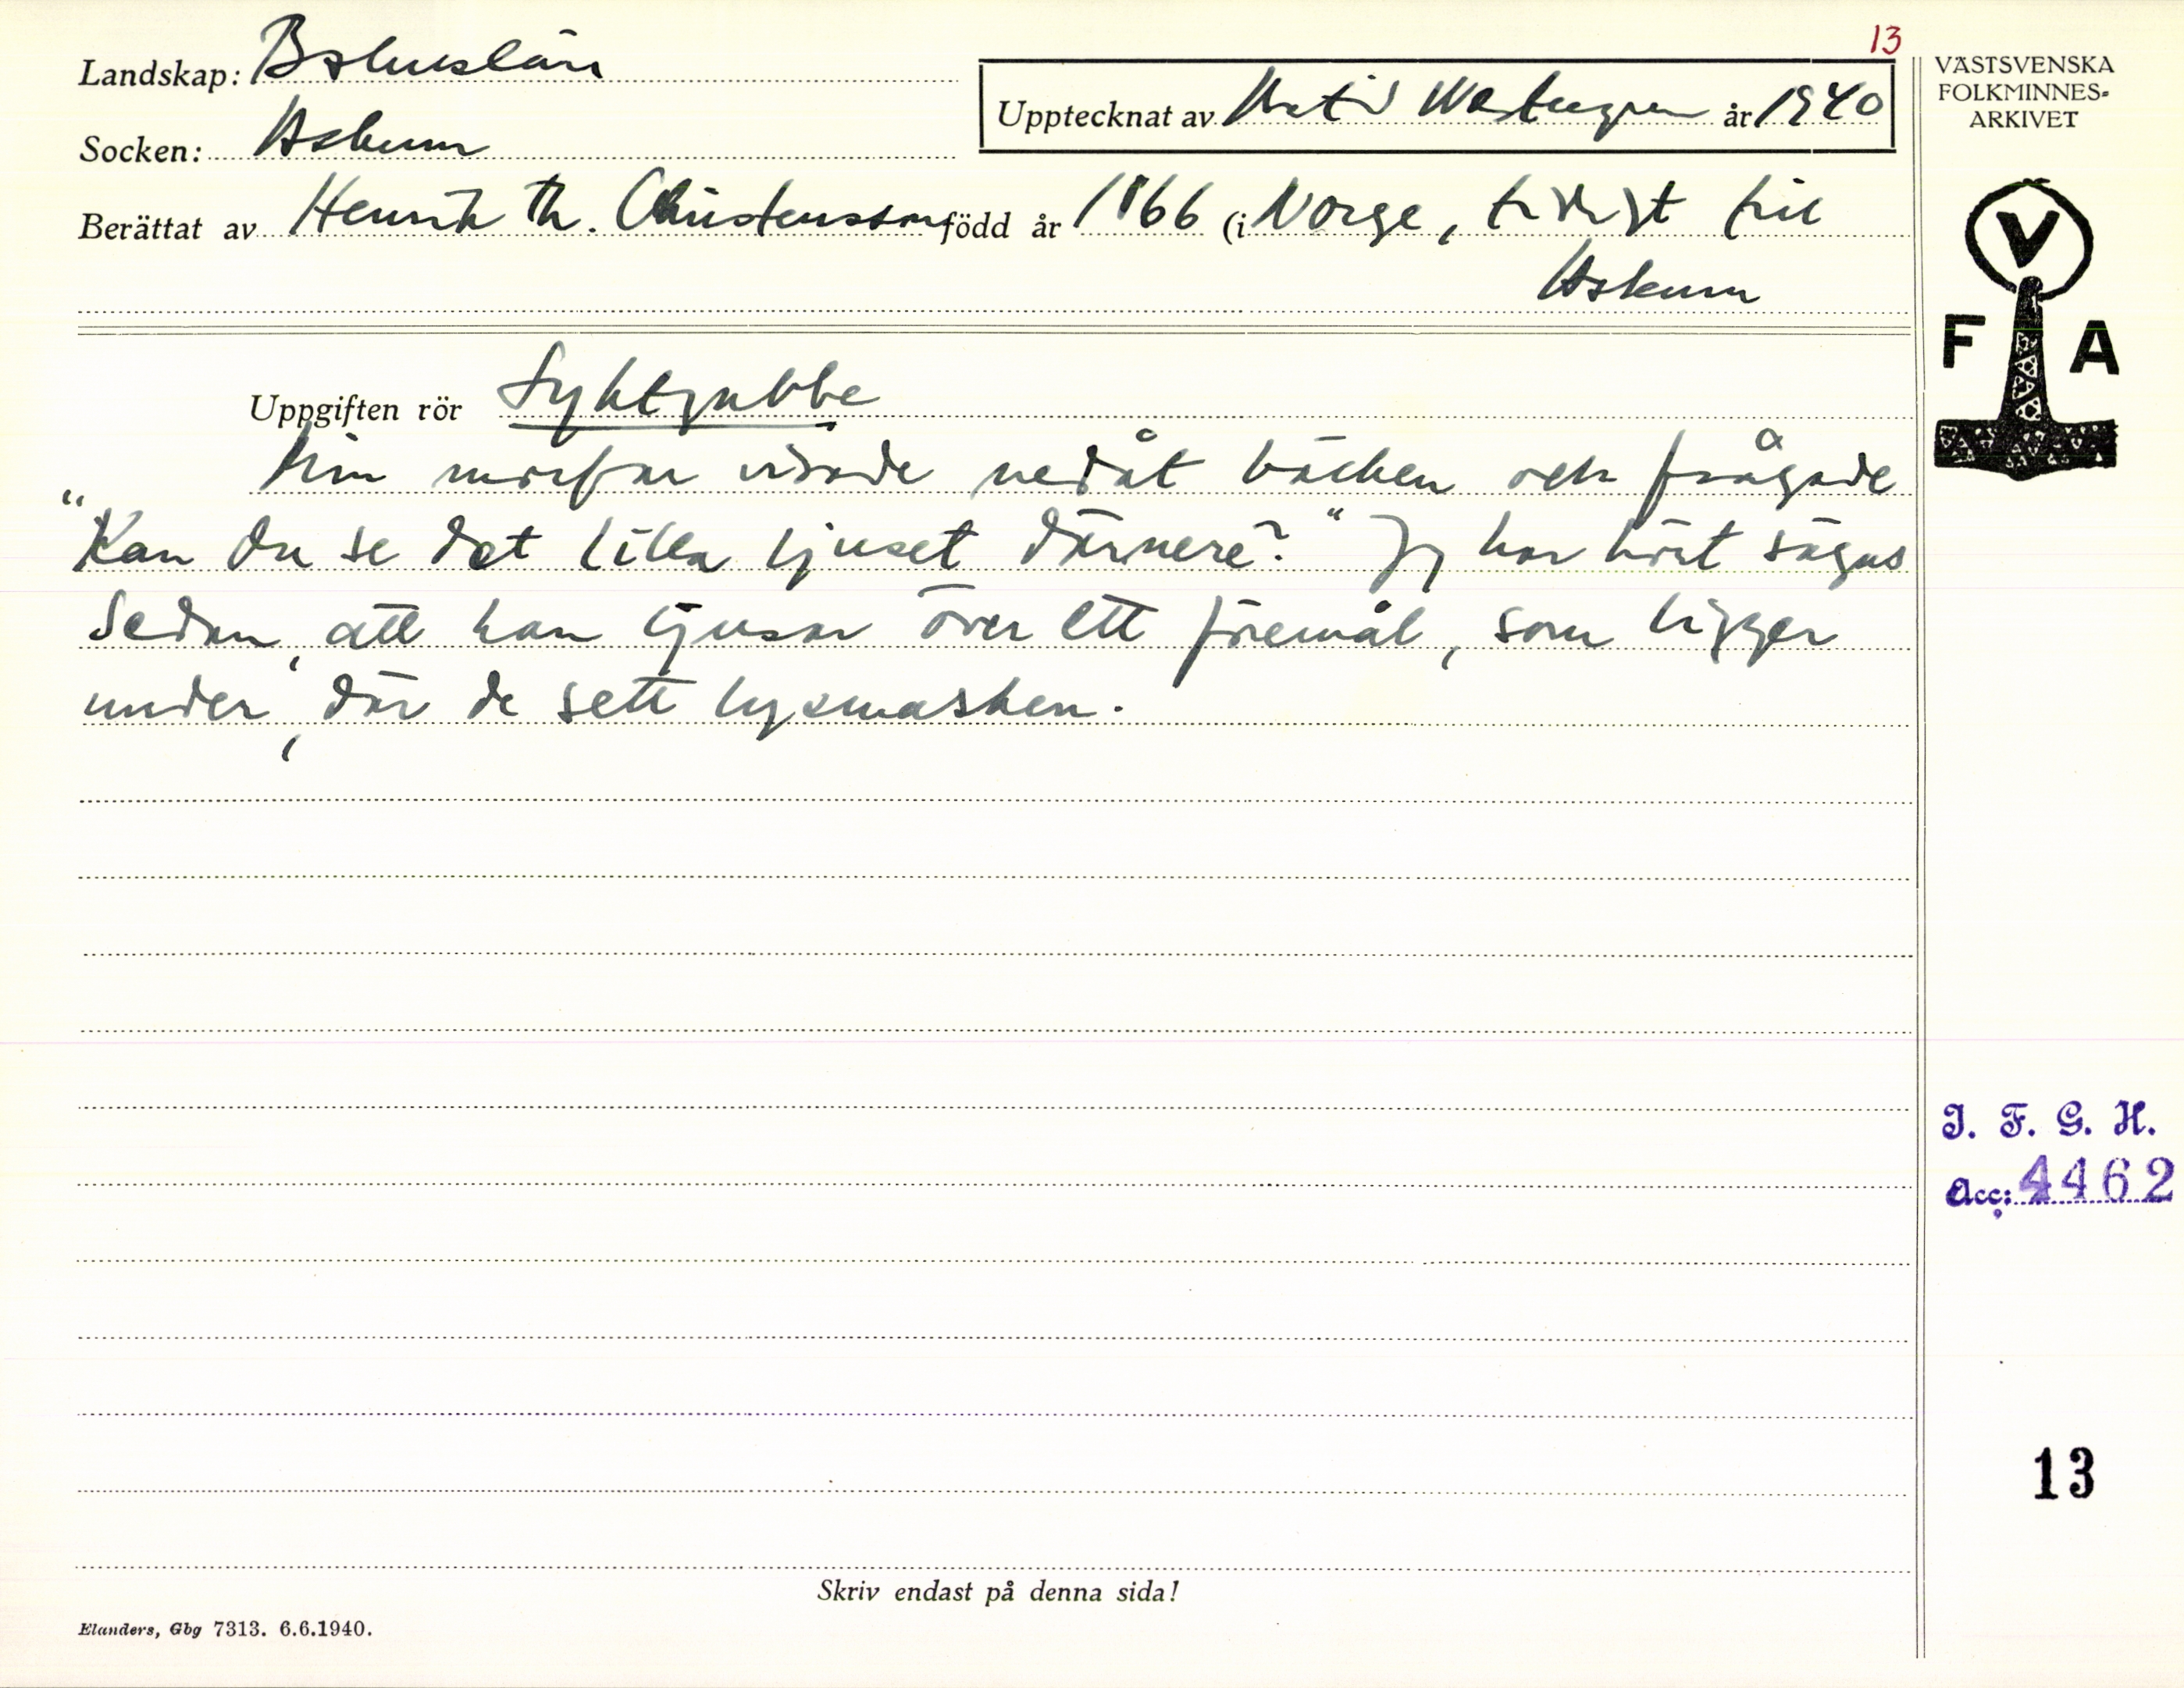 13
Landskap: Bohuslän
VÄSTSVENSKA
FOLKMINNES-
ARKIVET
Upptecknat av Westergren år 1940
Socken: Askum
Berättat av Henrik Th. Christensson född år 1866 (i Norge, till
Askum
V
F A
Uppgiften rör Lyktgubbe
Min morfar visade nedåt bäcken och frågade
"Kan du se det lilla ljuset därnere?" Jag har hört sägas
sedan, att han ljusar över ett föremål, som ligger
under, där de sett lysmasken.
I. F. G. H.
Acc: 4462
13
Skriv endast på denna sida!
Elanders, Gbg 7313. 6.6.1940.